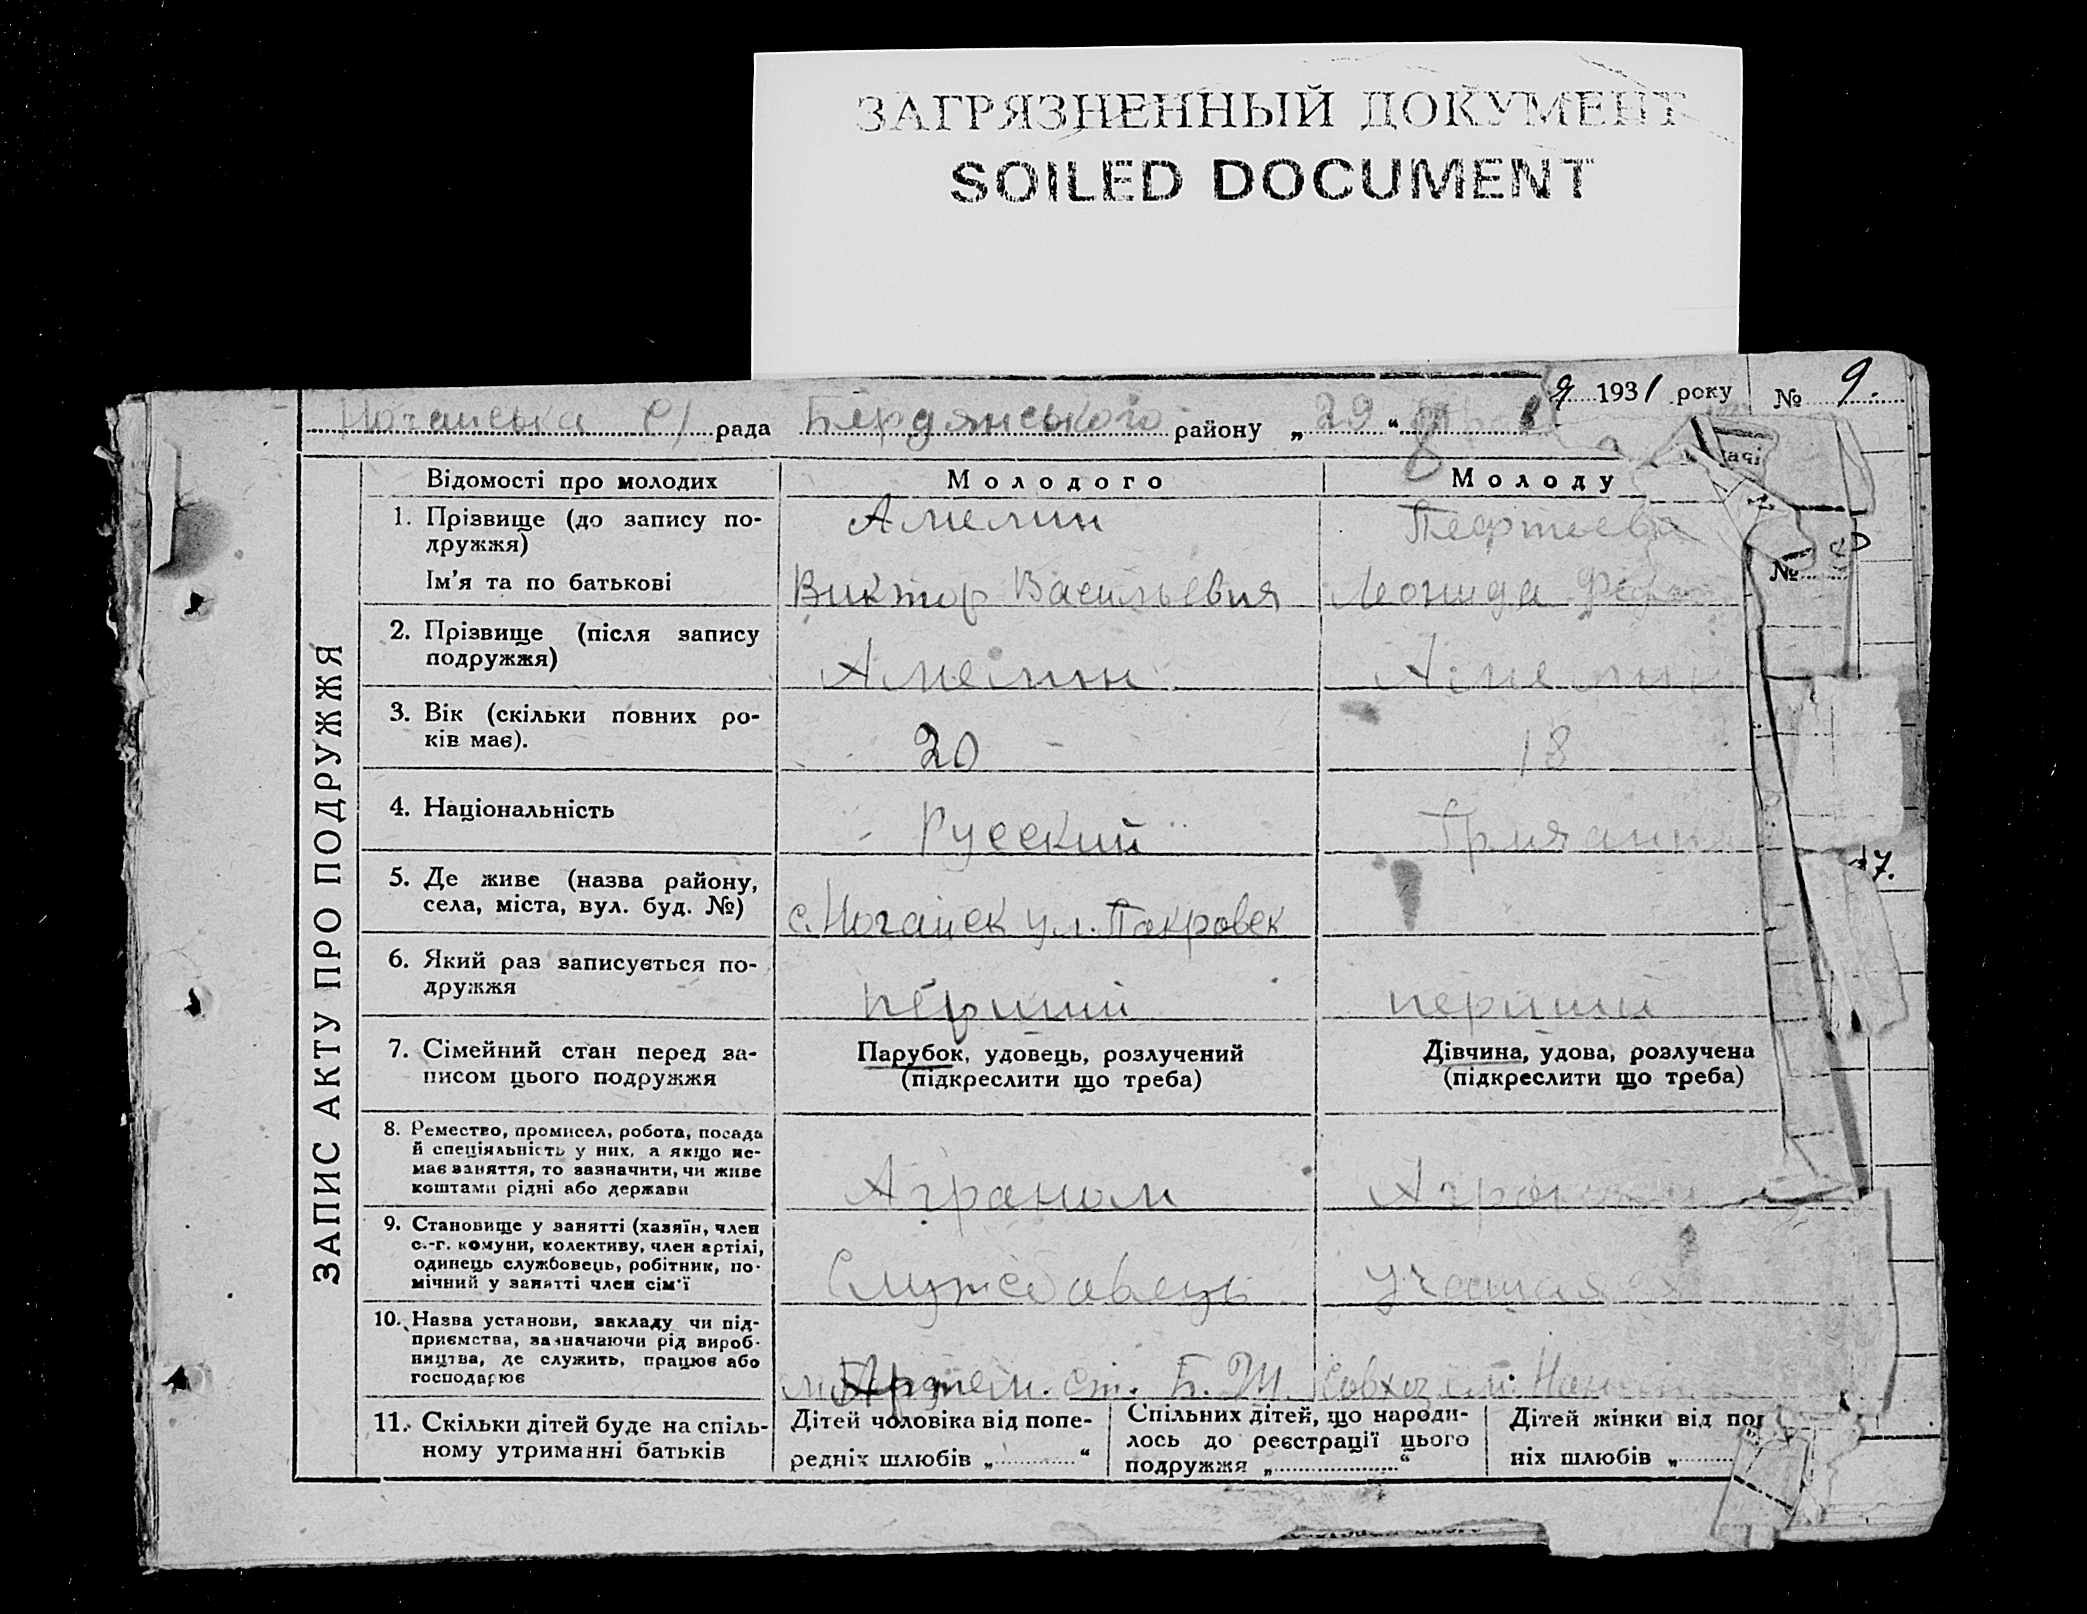 ЗАГРЯЗНЕННЫЙ ДОКУМЕНТ
SOILED DOCUMENT
1931 року № 9.
Ногайська с/ рада Бердянського району „29“
ЗАПИС АКТУ ПРО ПОДРУЖЖЯ
Відомості про молодих
Молодого
Молоду
1. Прізвище (до запису по-
дружжя)
Ім'я та по батькові
Амелин
Виктор Васильевия
Леонида
2. Прізвище (після запису
подружжя)
Амелин
Амелин
3. Вік (скільки повних ро-
ків має).
20
18
4. Національність
Русский
5. Де живе (назва району,
села, міста, вул. буд. №)
с. Ногайск ул. Покровск
6. Який раз записується по-
дружжя
перший
перший
7. Сімейний стан перед за-
писом цього подружжя
Парубок, удовець, розлучений
(підкреслити що треба)
Дівчина, удова, розлучена
(підкреслити що треба)
8. Ремество, промисел, робота, посада
й спеціяльність у них, а якщо не-
має заняття, то зазначити, чи живе
коштами рідні або держави
Аграном
9. Становище у занятті (хазяїн, член
с.-г. комуни, колективу, член артілі,
одинець службовець, робітник, по-
мічний у занятті член сім'ї
Службовець
учащаяся
10. Назва установи, закладу чи під-
приємства, зазначаючи рід вироб-
ництва, де служить, працює або
господарює
ст. Б. Ш.
Совхоз им.
11. Скільки дітей буде на спіль-
ному утриманні батьків
Дітей чоловіка від попе-
редніх шлюбів „ “
Спільних дітей, що народи-
лось до реєстрації цього
подружжя „ “
Дітей жінки від поп
ніх шлюбів „
№
17.